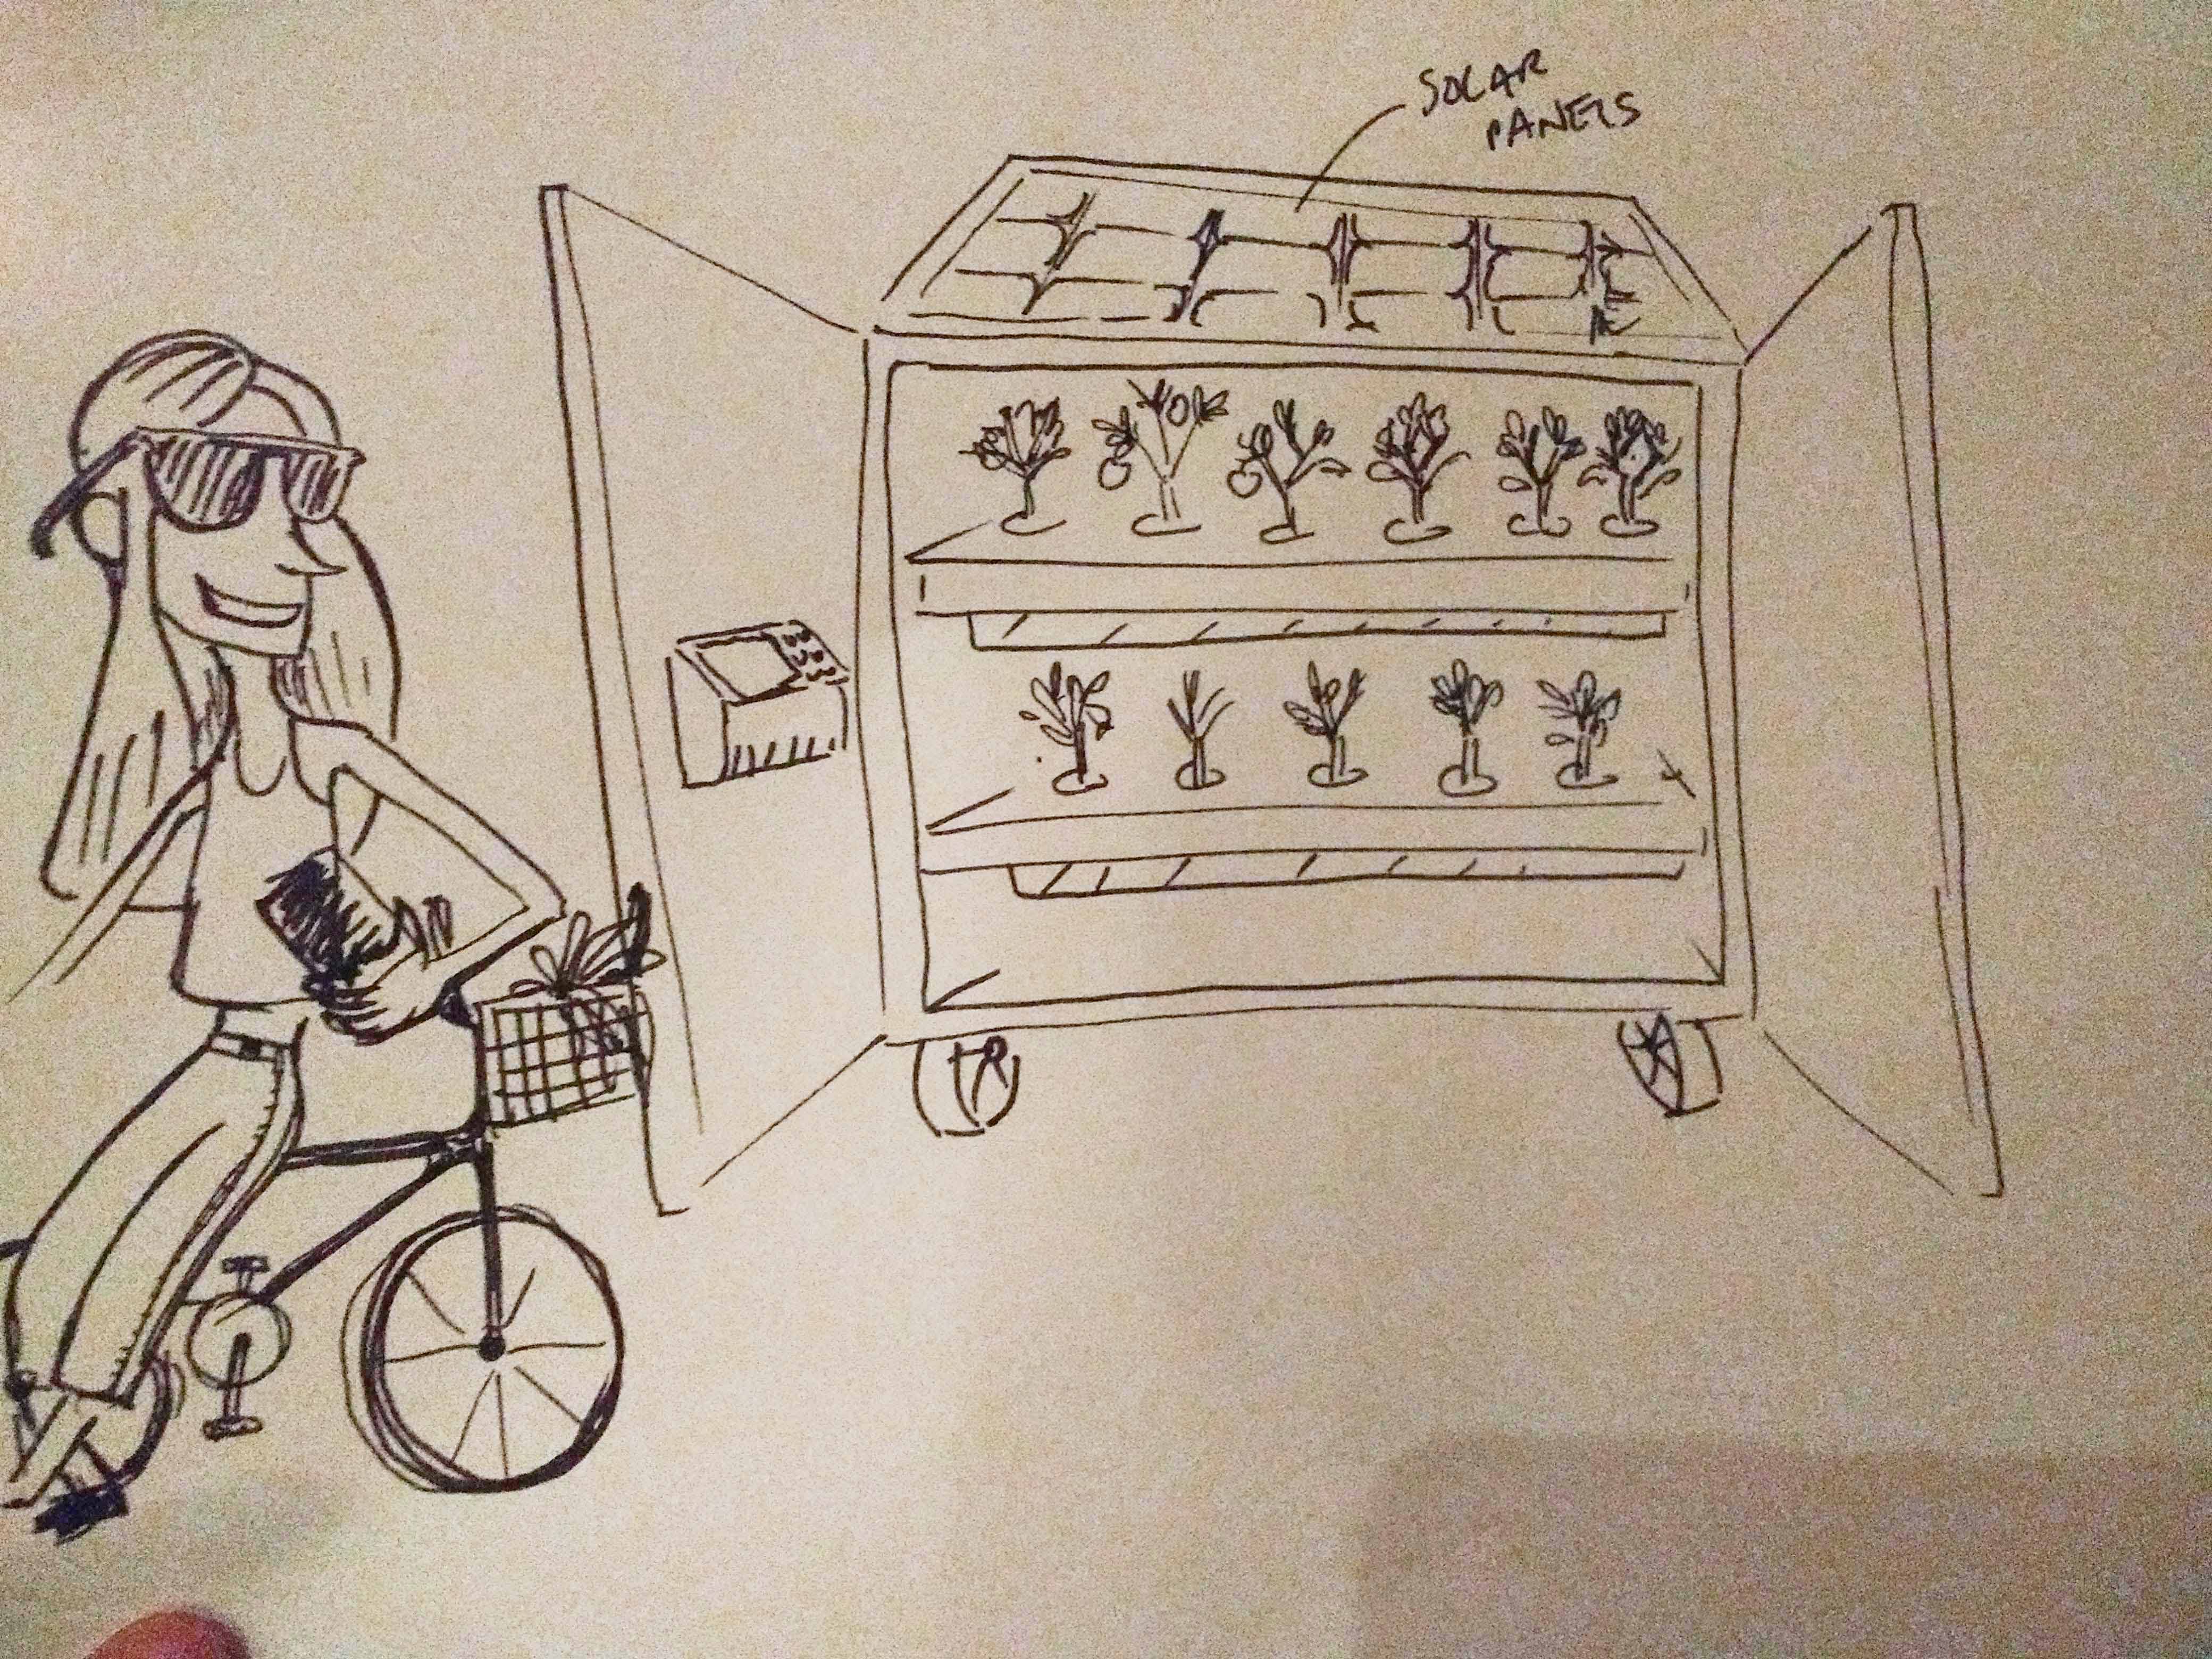 SOLAR
PANELS